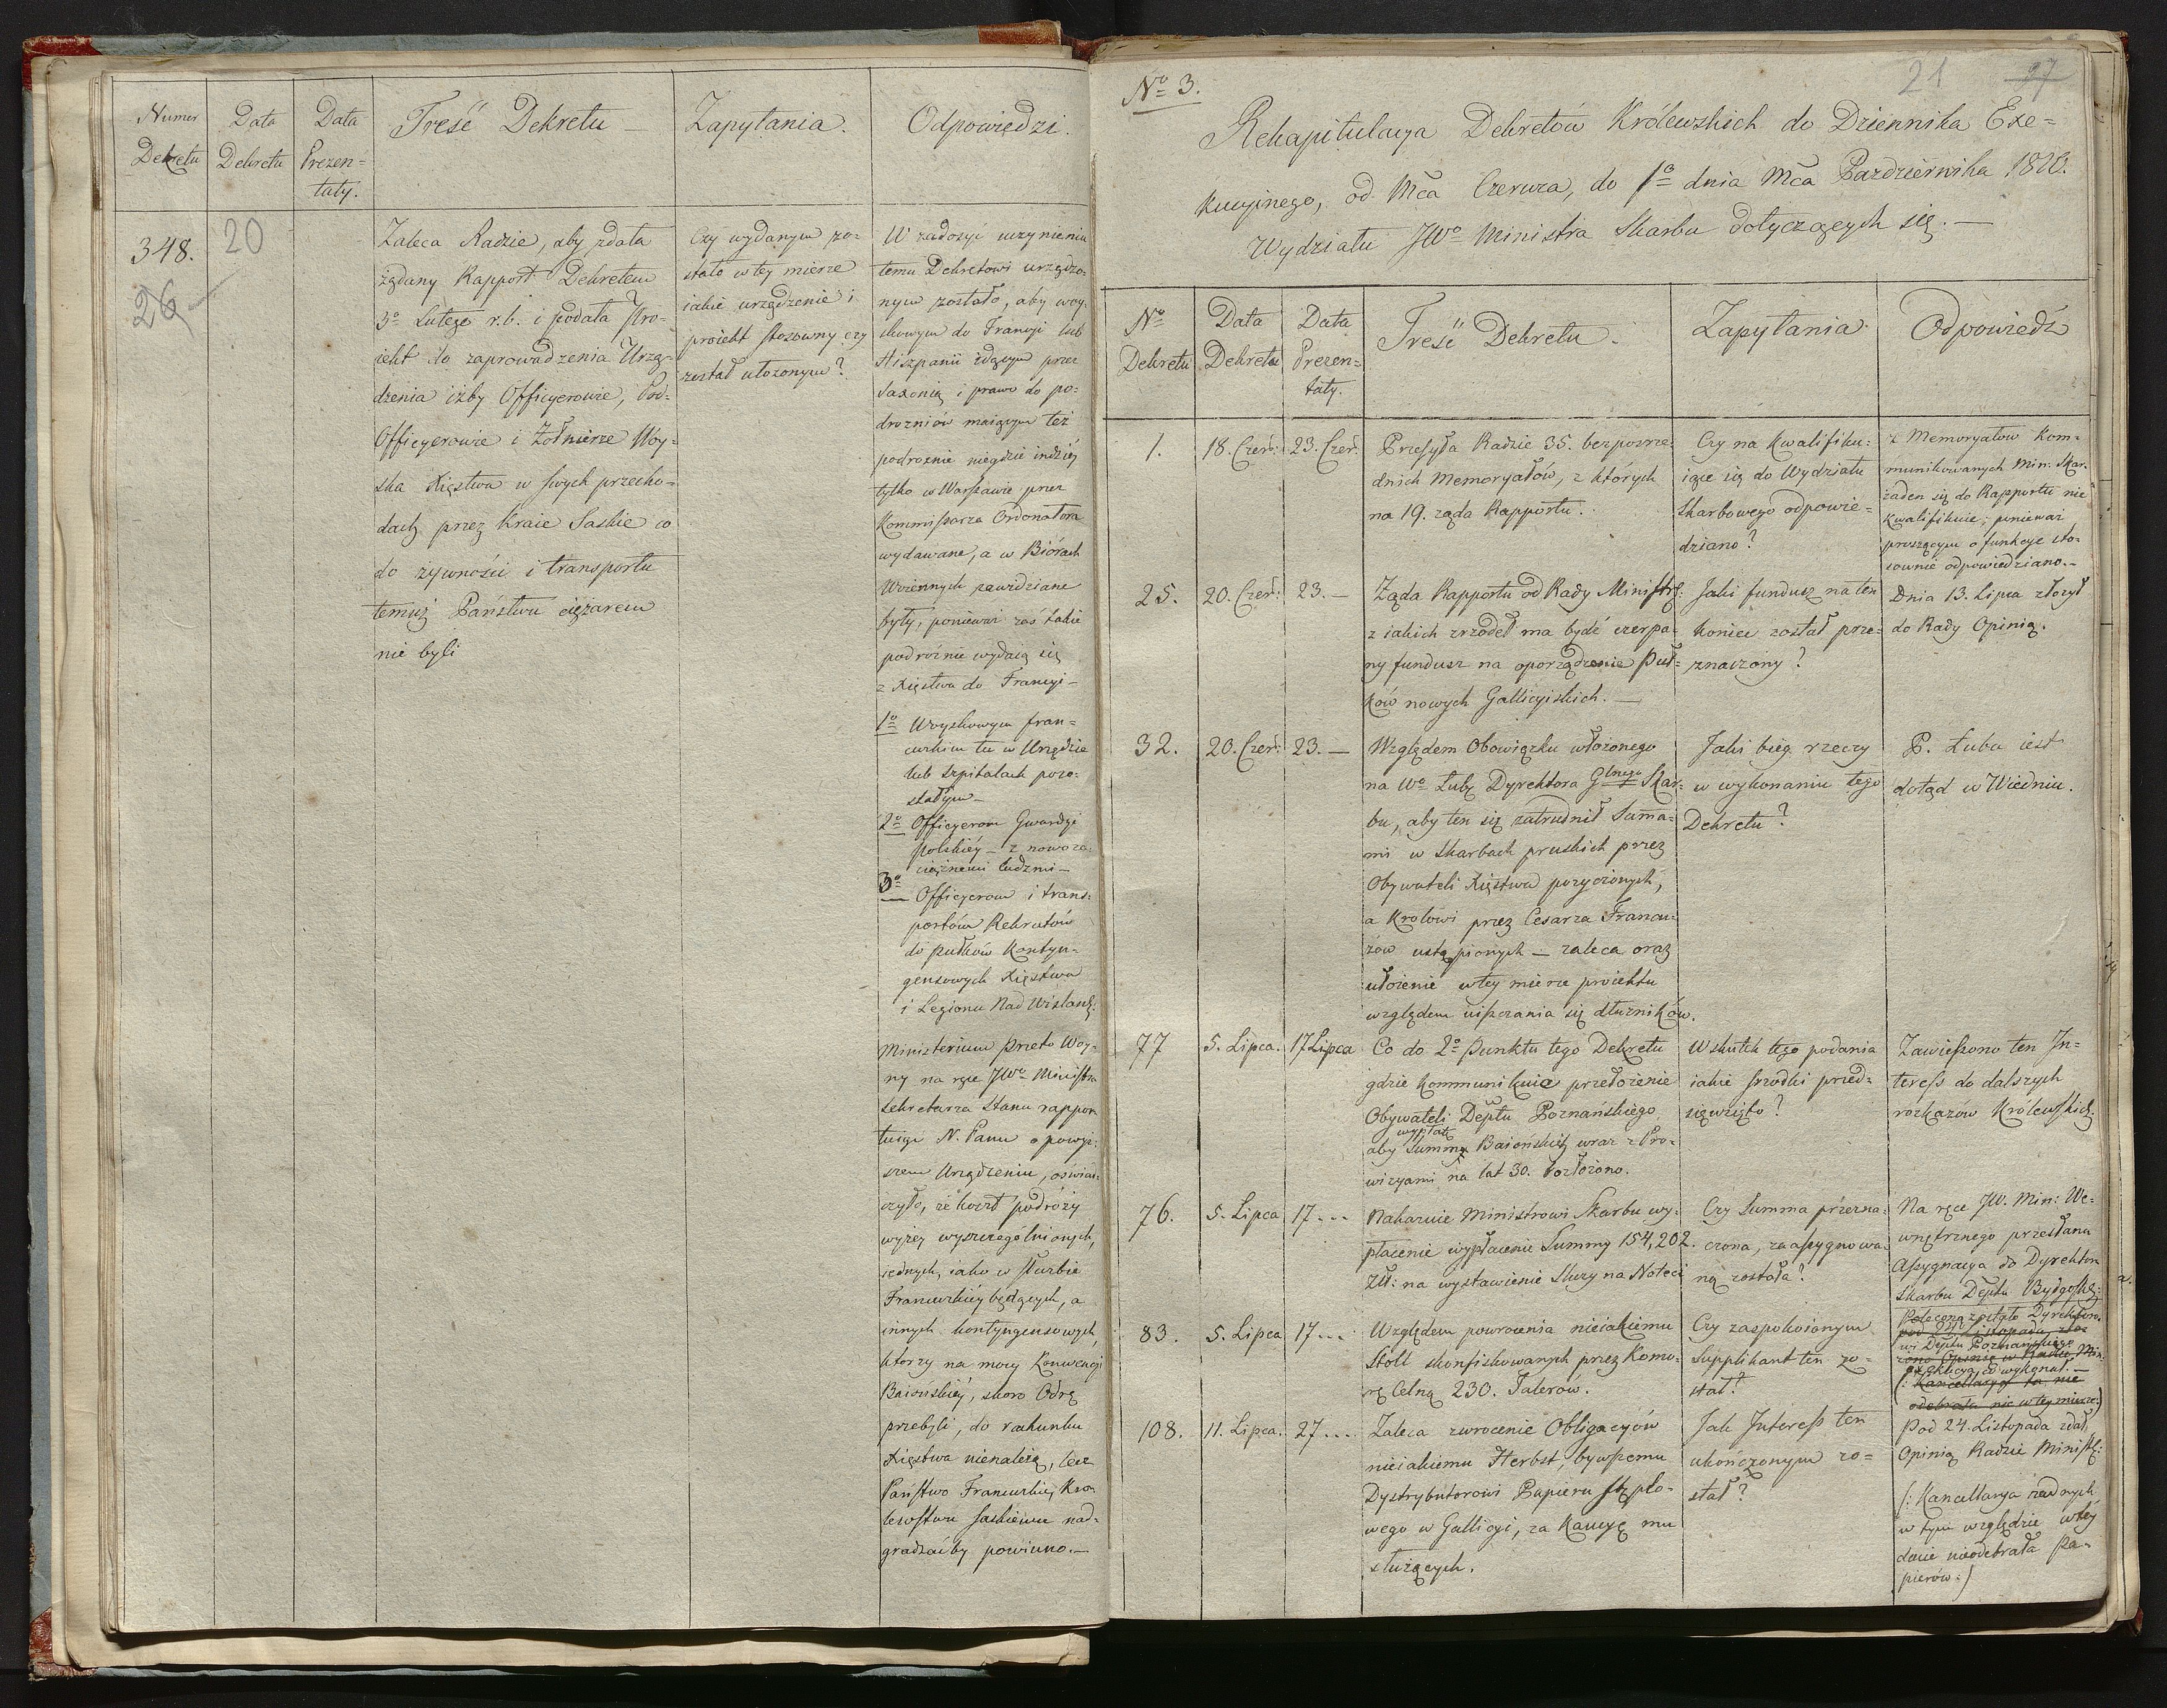 Numer Dekretu
Data Dekretu
Data Prezen=
taty.
Treść Dekretu —
Zapytania.
Odpowiedzi.
348.
20
26
Zaleca Radzie, aby zdała
żądany Rapport Dekretem
3º Lutego r.b. i podała Pro-
iekt do zaprowadzenia Urzą-
dzenia iżby Officyerowie, Pod-
Officyerowie i Żołnierze Woy-
ska Xięstwa w swych przecho-
dach przez Kraie Saskie co
do żywności i transportu
temuż Państwu ciężarem
nie byli
Czy wydanym zo-
stało w tey mierze
iakie urządzenie i
proiekt stosowny czy
został ułożonym?
W zadosyć uczynieniu
temu Dekretowi urządzo-
nym zostało, aby woy-
skowym do Francyi lub
Hiszpanii idącym przez
Saxonią i prawo do po-
drożniów maiącym też
podrożnie niegdzie indziéy
tylko w Warszawie przez
Kommissarza Ordonatora
wydawane, a w Biórach
Woiennych zawidziane
były, ponieważ zaś takie
podróżnie wydaią się
z Xięstwa do Francyi —
1º Woyskowym fran=
cuzkim tu w Urzędzie
lub szpitalach pozo-
stałym —
2º Officyerom Gwardyi
polskiéy — z nowoza-
ciężnemi ludźmi —
3º Officyerom i trans-
portów Rekrutów
do pułków Kontyn-
gensowych Xięstwa
i Legionu Nad Wislansk:
Ministerium przeto Woy-
ny na ręce JWo Ministra
Sekretarza Stanu rappor
tuiąc N. Panu o powyż-
szem Urządzeniu, oświad-
czyło, że koszt podróży
wyżey wyszczególnionych,
iednych, iako w służbie
Francuzkiéy będących, a
innych kontyngensowych,
którzy na mocy Konwencyi
Baiońskiéy, skoro Odrę
przebyli, do rachunku
Xięstwa nienależą, lecz
Państwo Francuzkie, Kró
lewstwu Saskiemu nad-
gradzaćby powinno. —
Nº 3.
21
97
Rekapitulacya Dekretów Królewskich do Dziennika Exe=
kucyinego, od Mca Czerwca, do 1º dnia Mca Pazdziernika 1810.
Wydziału JWo Ministra Skarbu dotyczących się. —
Nº Dekretu
Data Dekretu
Data Prezen=
taty.
Treść Dekretu.
Zapytania.
Odpowiedź
1.
18. Czer:
23. Czer.
Przesyła Radzie 35. bezpośre-
dnich Memoryałów, z których
na 19. żąda Rapportu.
Czy na kwalifiku-
iące się do Wydziału
Skarbowego odpowie-
dziano?
z Memoryałow kom-
munikowanych Min: Skar.
żaden się do Rapportu nie
kwalifikuie; ponieważ
proszącym o funkcye sto-
sownie odpowiedziano. —
25.
20. Czer:
23. —
Żąda Rapportu od Rady Ministr:
z iakich zrzodeł ma bydź czerpa-
ny fundusz na oporządzenie Puł=
ków nowych Gallicyiskich. —
Jaki fundusz na ten
koniec został prze=
znaczony?
Dnia 13. Lipca złożył
do Rady Opinią.
32.
20. Czer:
23. —
Względem Obowiązku włożonego
na Wo Łubę Dyrektora Glnego Skar-
bu, aby ten się zatrudnił Summa-
mi w Skarbach pruskich przez
Obywateli Xięstwa pożyczonych,
a Królowi przez Cesarza Francu-
zów ustąpionych — zaleca oraz
ułożenie w tey mierze proiektu
względem uiszczania się dłużników.
Jaki bieg rzeczy
w wykonaniu tego
Dekretu?
P. Łuba iest
dotąd w Wiedniu.
77
5. Lipca.
17 Lipca
Co do 2º Punktu tego Dekretu
gdzie kommunikuie przełożenie
Obywateli Deptu Poznańskiego
wypłatę
aby Summy Baiońskiéy wraz z Pro-
wizyami na lat 30. rozłożono.
Wskutek tego podania
iakie srzodki przed-
sięwzięto?
Zawieszono ten In=
teress do dalszych
rozkazów Królewskich.
76.
5. Lipca
17 ...
Nakazuie Ministrowi Skarbu wy-
płacenie wypłacenie Summy 154,202.
Zł: na wystawienie Sluzy na Noteci
Czy Summa przezna-
czona, zaassygnowa-
ną została?
Na ręce JW. Min: We-
wnętrznego przesłana
Assygnacya do Dyrektora
Skarbu Deptu Bydgoskie:
83.
5. Lipca
17 ...
Względem powrocenia nieiakiemu
Stoll skonfiskowanych przez Komo-
rę Celną 230. Talerów.
Czy zaspokoionym
Supplikant ten zo-
stał?
Polecono zostało Dyrektoro-
wi Deptu Poznańskiego
exekucyą, co wykonał. —
(: Kancellarya ta nie
odebrała nic w tey mierze:)
108.
11. Lipca.
27 ...
Zaleca zwrocenie Obligacyów
nieiakiemu Herbst, bywszemu
Dystrybutorowi Papieru stęplo-
wego w Gallicyi, za Kaucyę mu
służących.
Jak Interess ten
ukończonym zo=
stał?
Pod 24. Listopada zdał
Opinią Radzie Ministr:
(: Kancellarya żadnych
w tym względzie w tey
dacie nieodebrała Pa-
pierów:)